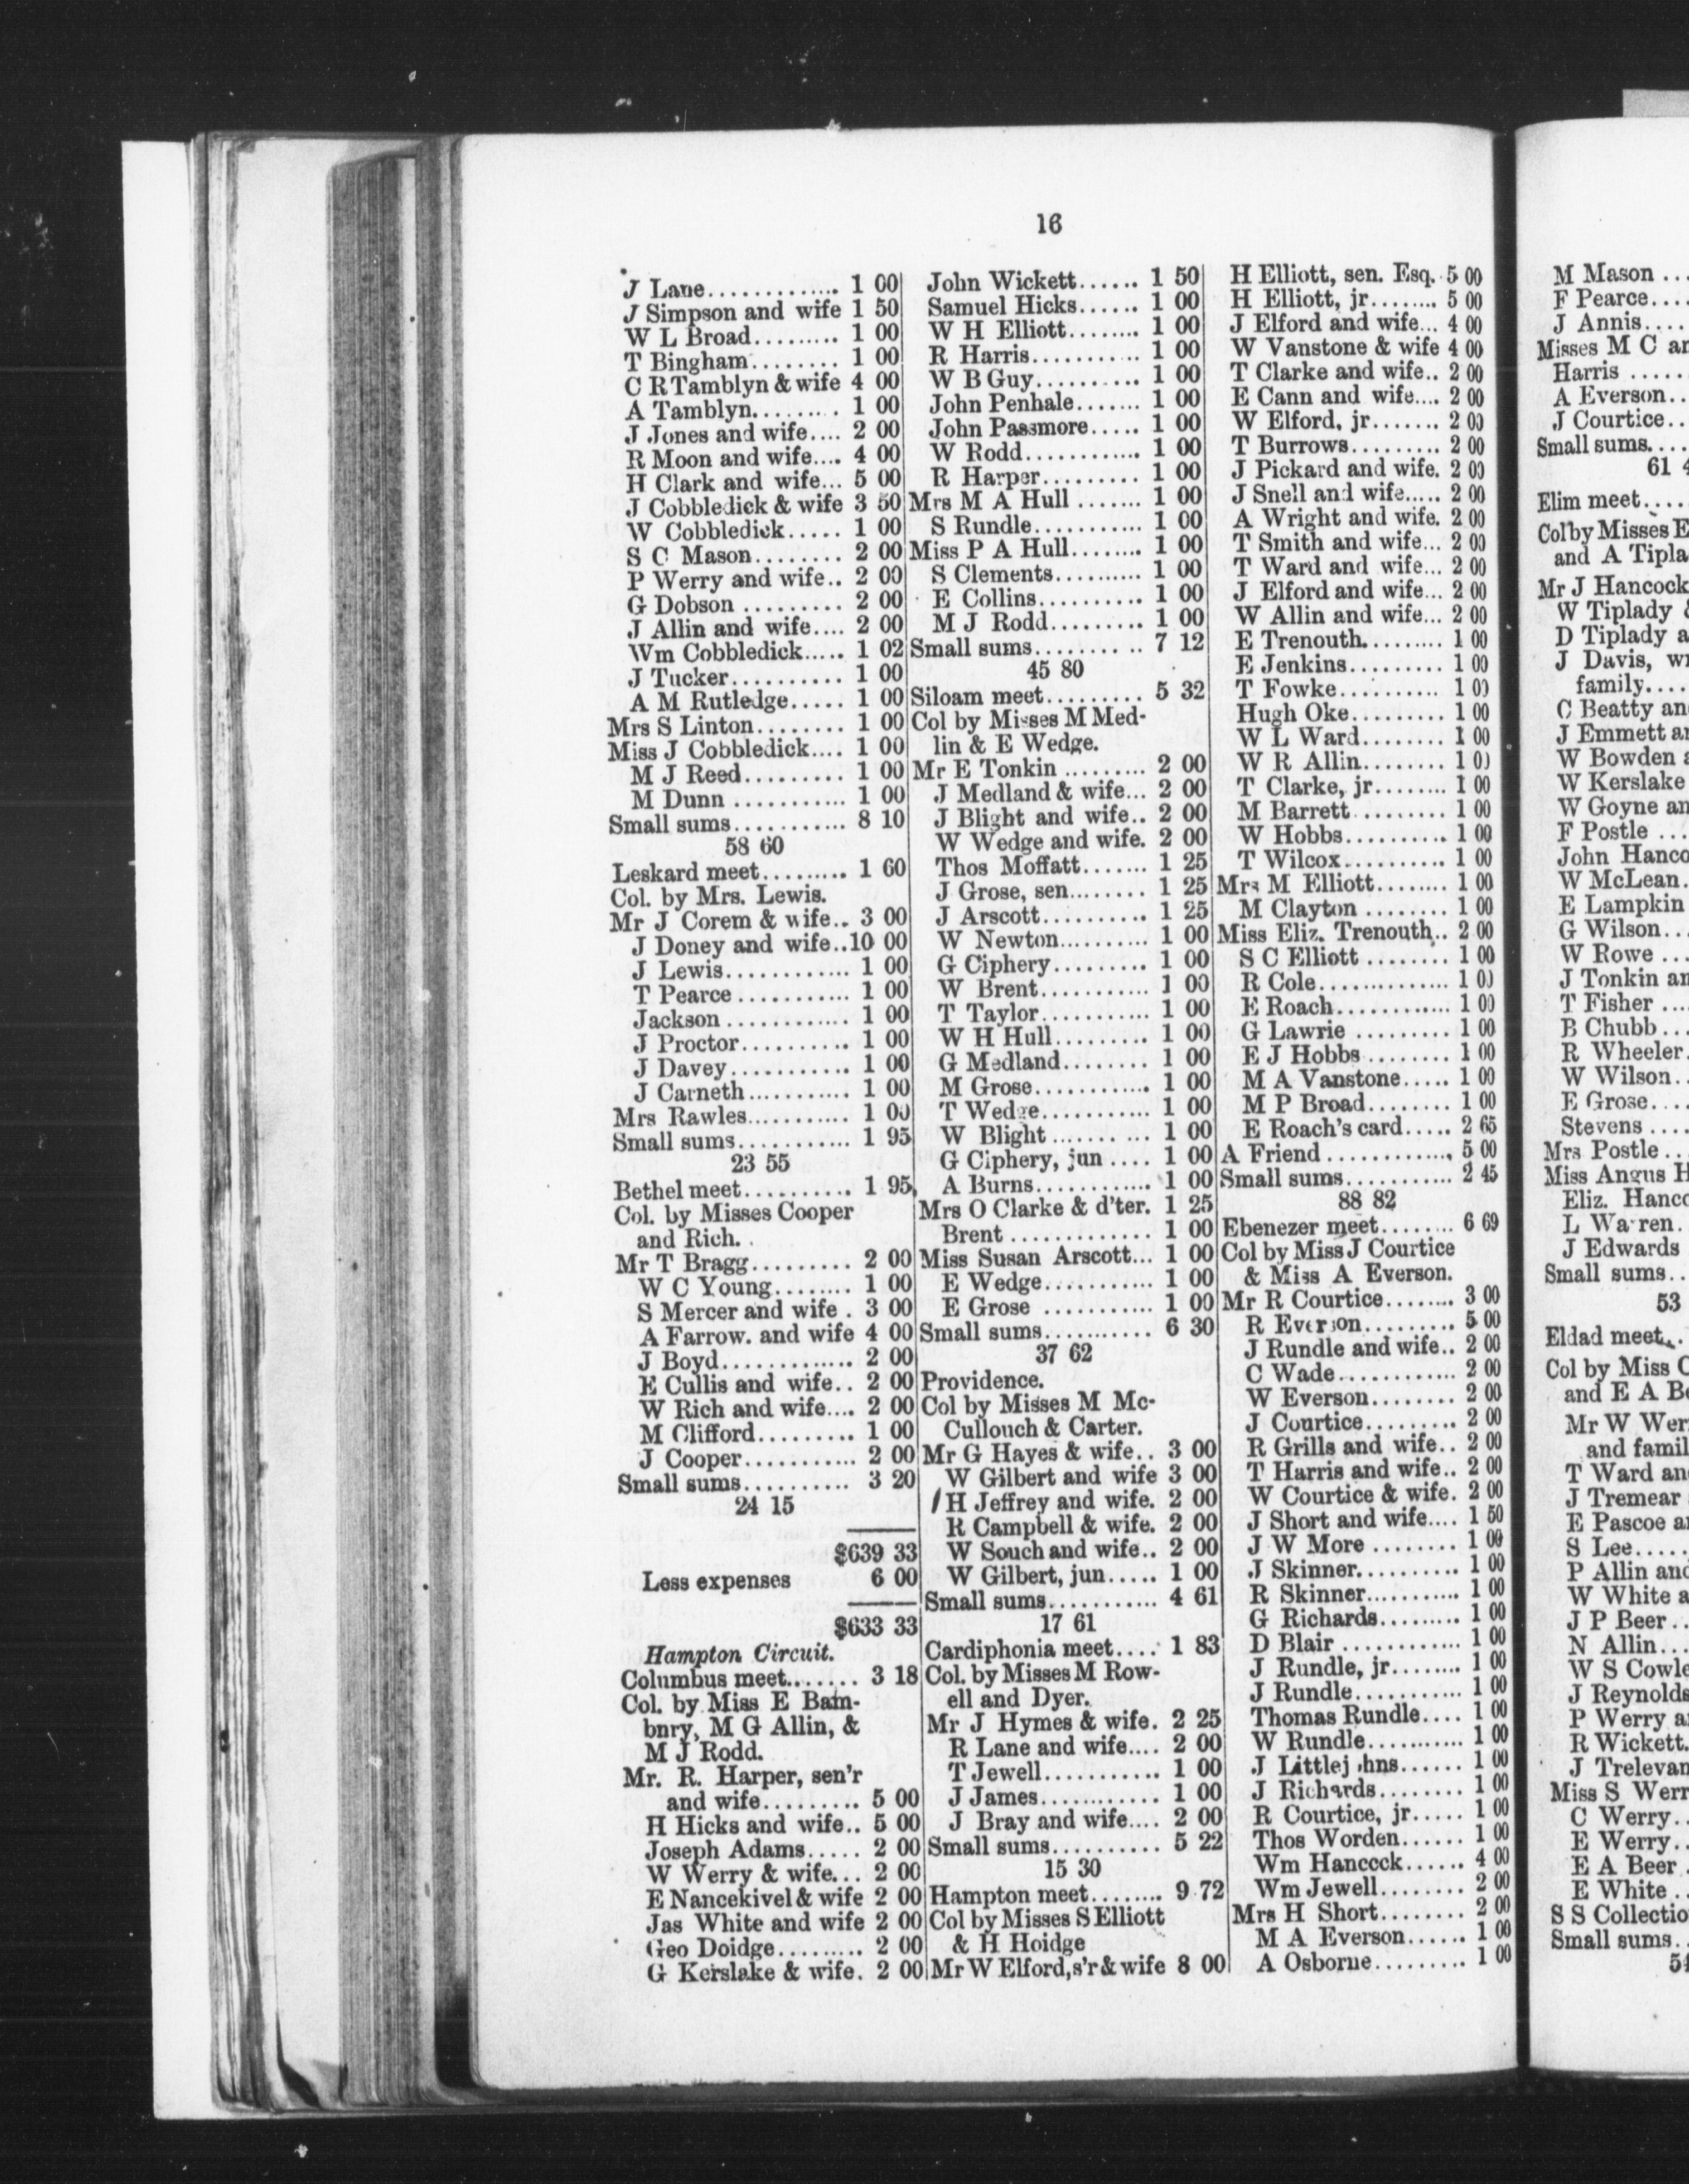 16
J Lane............. 1 00
J Simpson and wife 1 50
W L Broad......... 1 00
T Bingham......... 1 00
C R Tamblyn & wife 4 00
A Tamblyn......... 1 00
J Jones and wife.... 2 00
R Moon and wife.... 4 00
H Clark and wife... 5 00
J Cobbledick & wife 3 50
W Cobbledick..... 1 00
S C Mason........ 2 00
P Werry and wife.. 2 00
G Dobson ......... 2 00
J Allin and wife.... 2 00
Wm Cobbledick..... 1 02
J Tucker.......... 1 00
A M Rutledge..... 1 00
Mrs S Linton........ 1 00
Miss J Cobbledick.... 1 00
M J Reed......... 1 00
M Dunn ........... 1 00
Small sums........... 8 10
58 60
Leskard meet......... 1 60
Col. by Mrs. Lewis.
Mr J Corem & wife.. 3 00
J Doney and wife..10 00
J Lewis............ 1 00
T Pearce ........... 1 00
Jackson ............ 1 00
J Proctor.......... 1 00
J Davey........... 1 00
J Carneth.......... 1 00
Mrs Rawles.......... 1 00
Small sums........... 1 95
23 55
Bethel meet.......... 1 95
Col. by Misses Cooper
and Rich.
Mr T Bragg......... 2 00
W C Young........ 1 00
S Mercer and wife . 3 00
A Farrow. and wife 4 00
J Boyd............ 2 00
E Cullis and wife.. 2 00
W Rich and wife.... 2 00
M Clifford......... 1 00
J Cooper........... 2 00
Small sums.......... 3 20
24 15
$639 33
Less expenses 6 00
$633 33
Hampton Circuit.
Columbus meet....... 3 18
Col. by Miss E Bam-
bnry, M G Allin, &
M J Rodd.
Mr. R. Harper, sen'r
and wife......... 5 00
H Hicks and wife.. 5 00
Joseph Adams..... 2 00
W Werry & wife... 2 00
E Nancekivel & wife 2 00
Jas White and wife 2 00
Geo Doidge......... 2 00
G Kerslake & wife. 2 00
John Wickett...... 1 50
Samuel Hicks...... 1 00
W H Elliott........ 1 00
R Harris........... 1 00
W B Guy.......... 1 00
John Penhale....... 1 00
John Passmore..... 1 00
W Rodd............ 1 00
R Harper......... 1 00
Mrs M A Hull ....... 1 00
S Rundle........... 1 00
Miss P A Hull........ 1 00
S Clements.......... 1 00
E Collins.......... 1 00
M J Rodd......... 1 00
Small sums.......... 7 12
45 80
Siloam meet......... 5 32
Col by Misses M Med-
lin & E Wedge.
Mr E Tonkin ......... 2 00
J Medland & wife... 2 00
J Blight and wife.. 2 00
W Wedge and wife. 2 00
Thos Moffatt....... 1 25
J Grose, sen........ 1 25
J Arscott.......... 1 25
W Newton.......... 1 00
G Ciphery......... 1 00
W Brent........... 1 00
T Taylor........... 1 00
W H Hull......... 1 00
G Medland........ 1 00
M Grose............ 1 00
T Wedge........... 1 00
W Blight .......... 1 00
G Ciphery, jun .... 1 00
A Burns............ 1 00
Mrs O Clarke & d'ter. 1 25
Brent ............. 1 00
Miss Susan Arscott... 1 00
E Wedge........... 1 00
E Grose ........... 1 00
Small sums........... 6 30
37 62
Providence.
Col by Misses M Mc-
Cullouch & Carter.
Mr G Hayes & wife.. 3 00
W Gilbert and wife 3 00
H Jeffrey and wife. 2 00
R Campbell & wife. 2 00
W Souch and wife.. 2 00
W Gilbert, jun..... 1 00
Small sums........... 4 61
17 61
Cardiphonia meet.... 1 83
Col. by Misses M Row-
ell and Dyer.
Mr J Hymes & wife. 2 25
R Lane and wife.... 2 00
T Jewell........... 1 00
J James............ 1 00
J Bray and wife.... 2 00
Small sums.......... 5 22
15 30
Hampton meet........ 9 72
Col by Misses S Elliott
& H Hoidge
Mr W Elford, s'r & wife 8 00
H Elliott, sen. Esq. 5 00
H Elliott, jr........ 5 00
J Elford and wife... 4 00
W Vanstone & wife 4 00
T Clarke and wife.. 2 00
E Cann and wife.... 2 00
W Elford, jr....... 2 00
T Burrows......... 2 00
J Pickard and wife. 2 00
J Snell and wife..... 2 00
A Wright and wife. 2 00
T Smith and wife... 2 00
T Ward and wife... 2 00
J Elford and wife... 2 00
W Allin and wife... 2 00
E Trenouth......... 1 00
E Jenkins......... 1 00
T Fowke.......... 1 00
Hugh Oke......... 1 00
W L Ward........ 1 00
W R Allin........ 1 00
T Clarke, jr........ 1 00
M Barrett......... 1 00
W Hobbs.......... 1 00
T Wilcox.......... 1 00
Mrs M Elliott........ 1 00
M Clayton ........ 1 00
Miss Eliz. Trenouth.. 2 00
S C Elliott ........ 1 00
R Cole............. 1 00
E Roach............ 1 00
G Lawrie ......... 1 00
E J Hobbs........ 1 00
M A Vanstone..... 1 00
M P Broad........ 1 00
E Roach's card..... 2 65
A Friend ............ 5 00
Small sums........... 2 45
88 82
Ebenezer meet........ 6 69
Col by Miss J Courtice
& Miss A Everson.
Mr R Courtice........ 3 00
R Everson......... 5 00
J Rundle and wife.. 2 00
C Wade............ 2 00
W Everson........ 2 00
J Courtice......... 2 00
R Grills and wife.. 2 00
T Harris and wife.. 2 00
W Courtice & wife. 2 00
J Short and wife.... 1 50
J W More ........ 1 00
J Skinner.......... 1 00
R Skinner.......... 1 00
G Richards......... 1 00
D Blair ............ 1 00
J Rundle, jr........ 1 00
J Rundle........... 1 00
Thomas Rundle.... 1 00
W Rundle.......... 1 00
J Littlej hns...... 1 00
J Richards........ 1 00
R Courtice, jr..... 1 00
Thos Worden...... 1 00
Wm Hancock...... 4 00
Wm Jewell........ 2 00
Mrs H Short........ 2 00
M A Everson...... 1 00
A Osborne......... 1 00
M Mason ...
F Pearce....
J Annis....
Misses M C
Harris .....
A Everson..
J Courtice..
Small sums....
61
Elim meet....
Col by Misses E
and A Tipla
Mr J Hancock
W Tiplady
D Tiplady
J Davis,
family....
C Beatty
J Emmett
W Bowden
W Kerslake
W Goyne
F Postle ...
John Hanco
W McLean.
E Lampkin
G Wilson...
W Rowe ...
J Tonkin
T Fisher ...
B Chubb...
R Wheeler.
W Wilson..
E Grose....
Stevens ....
Mrs Postle ..
Miss Angus H
Eliz. Hanco
L Wa ren.
J Edwards
Small sums..
53
Eldad meet..
Col by Miss
and E A
Mr W Wer
and famil
T Ward
J Tremear
E Pascoe
S Lee.....
P Allin
W White
J P Beer..
N Allin...
W S Cowle
J Reynolds
P Werry
R Wickett.
J Trelevan
Miss S Werr
C Werry..
E Werry..
E A Beer.
E White..
S S Collectio
Small sums..